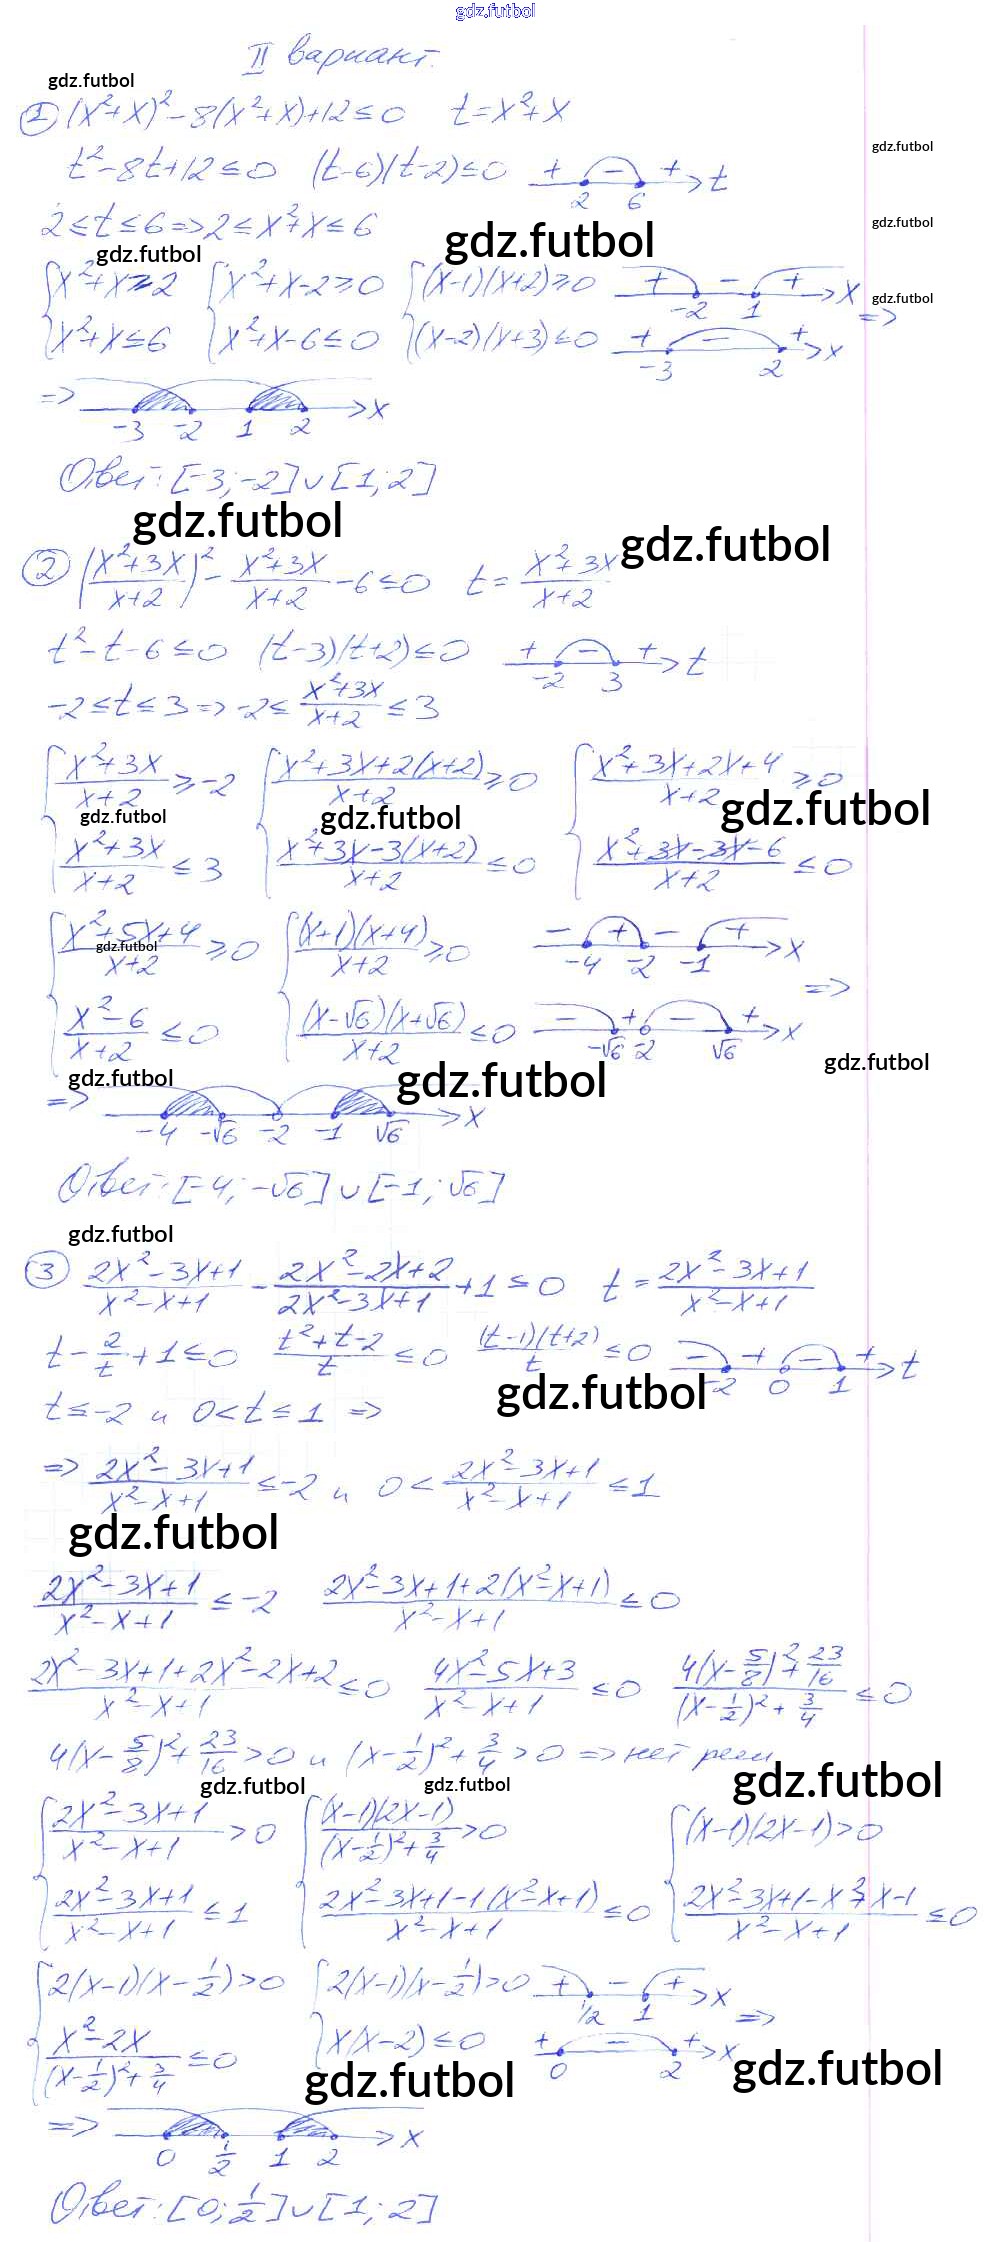 gdz.futbol
II вариант.
gdz.futbol
① (x²+x)²-8(x²+x)+12≤0 t=x²+x
gdz.futbol
t²-8t+12≤0 (t-6)(t-2)≤0 + - + t
2 6
gdz.futbol
2≤t≤6=>2≤x²+x≤6
gdz.futbol
gdz.futbol
{x²+x≥2 {x²+x-2≥0 {(x-1)(x+2)≥0 + - + x
-2 1
gdz.futbol
{x²+x≤6 {x²+x-6≤0 {(x-2)(x+3)≤0 + - + x =>
-3 2
=> x
-3 -2 1 2
Ответ: [-3; -2]∪[1; 2]
gdz.futbol
gdz.futbol
② ((x²+3x)/(x+2))² - (x²+3x)/(x+2) - 6≤0 t = (x²+3x)/(x+2)
t²-t-6≤0 (t-3)(t+2)≤0 + - + t
-2 3
-2≤t≤3=>-2≤ (x²+3x)/(x+2) ≤3
{(x²+3x)/(x+2) ≥-2 {(x²+3x+2(x+2))/(x+2) ≥0 {(x²+3x+2x+4)/(x+2) ≥0
gdz.futbol gdz.futbol gdz.futbol
{(x²+3x)/(x+2) ≤3 {(x²+3x-3(x+2))/(x+2) ≤0 {(x²+3x-3x-6)/(x+2) ≤0
{(x²+5x+4)/(x+2) ≥0 {((x+1)(x+4))/(x+2) ≥0 - + - + x
-4 -2 -1
gdz.futbol
=>
{(x²-6)/(x+2) ≤0 {((x-√6)(x+√6))/(x+2) ≤0 - + - + x
-√6 -2 √6
gdz.futbol
gdz.futbol
gdz.futbol
=> x
-4 -√6 -2 -1 √6
Ответ: [-4; -√6]∪[-1; √6]
gdz.futbol
③ (2x²-3x+1)/(x²-x+1) - (2x²-2x+2)/(2x²-3x+1) +1≤0 t = (2x²-3x+1)/(x²-x+1)
t - 2/t +1≤0 (t²+t-2)/t ≤0 ((t-1)(t+2))/t ≤0 - + - + t
-2 0 1
gdz.futbol
t≤-2 и 0<t≤1 =>
=> (2x²-3x+1)/(x²-x+1) ≤-2 и 0< (2x²-3x+1)/(x²-x+1) ≤1
gdz.futbol
(2x²-3x+1)/(x²-x+1) ≤-2 (2x²-3x+1+2(x²-x+1))/(x²-x+1) ≤0
(2x²-3x+1+2x²-2x+2)/(x²-x+1) ≤0 (4x²-5x+3)/(x²-x+1) ≤0 (4(x-5/8)²+23/16)/((x-1/2)²+3/4) ≤0
4(x-5/8)²+23/16>0 и (x-1/2)²+3/4>0 => нет реш
gdz.futbol gdz.futbol gdz.futbol
{(2x²-3x+1)/(x²-x+1) >0 {((x-1)(2x-1))/((x-1/2)²+3/4) >0 {(x-1)(2x-1)>0
{(2x²-3x+1)/(x²-x+1) ≤1 {(2x²-3x+1-1(x²-x+1))/(x²-x+1) ≤0 {(2x²-3x+1-x²+x-1)/(x²-x+1) ≤0
{2(x-1)(x-1/2)>0 {2(x-1)(x-1/2)>0 + - + x =>
1/2 1
{(x²-2x)/((x-1/2)²+3/4) ≤0 {x(x-2)≤0 + - + x
0 2
gdz.futbol gdz.futbol
=> x
0 1/2 1 2
Ответ: [0; 1/2]∪[1; 2]